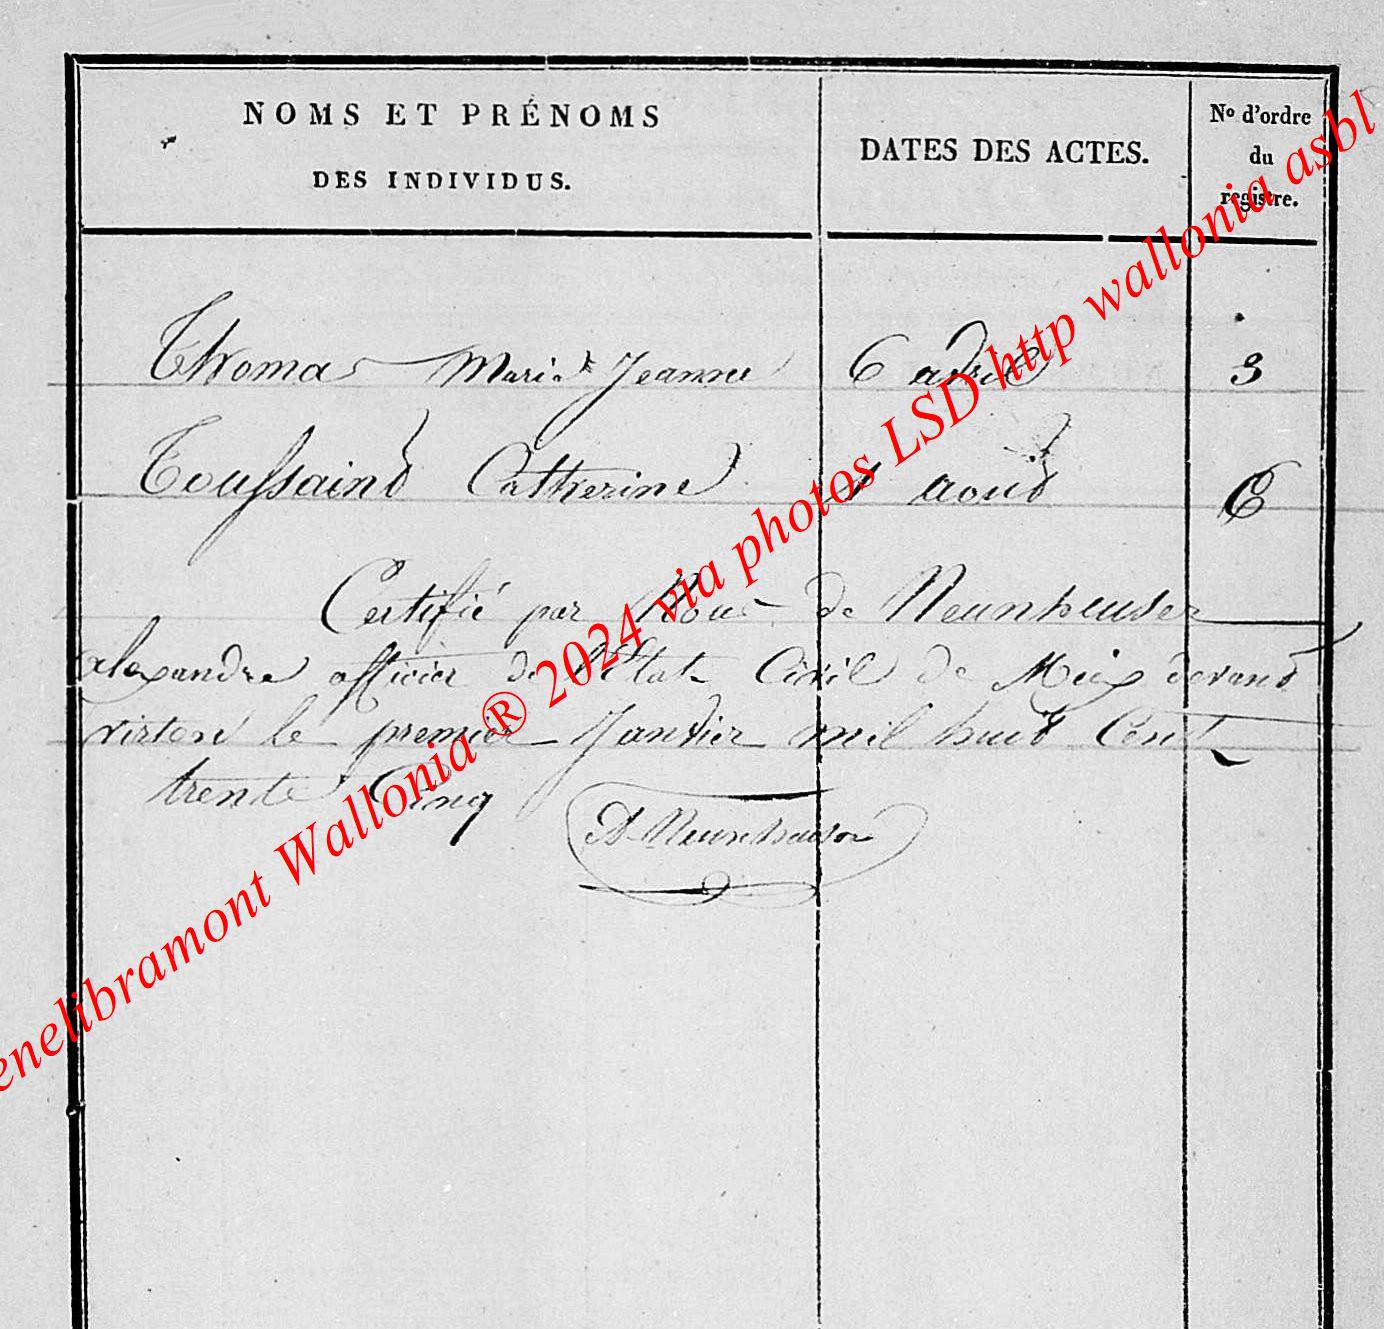 NOMS ET PRÉNOMS
DES INDIVIDUS.
DATES DES ACTES.
No d'ordre
du
registre.
Thomas Marie Jeanne 6 avril 3
Toussaind Catherine aoud 6
Certifié par Nous de Neunheuser
alexandre officier de l'Etat Civil de Meix devand
virton le premier Janvier mil huid Cent
trente Cinq
A Neunheuser
enelibramont Wallonia ® 2024 via photos LSD http wallonia asbl